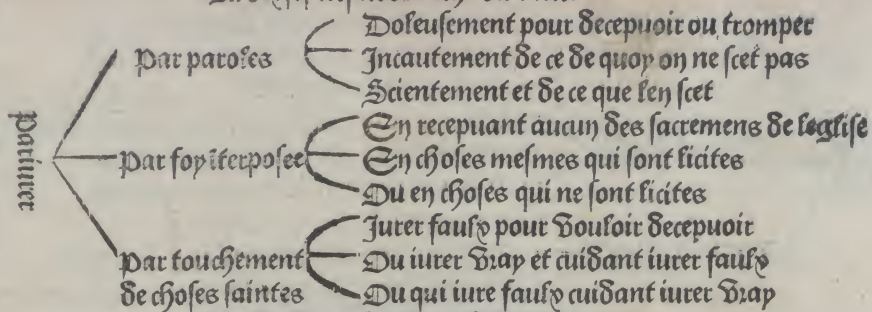 Pariurer
Par paroles
Doleusement pour decepuoir ou tromper
Incautement de ce de quoy on ne scet pas
Scientement et de ce que len scet
Par foy īterposee
En recepuant aucun des sacremens de leglise
En choses mesmes qui sont licites
Ou en choses qui ne sont licites
Par touchement
de choses saintes
Jurer faulx pour vouloir decepuoir
Ou iurer vray et cuidant iurer faulx
Ou qui iure faulx cuidant iurer vray